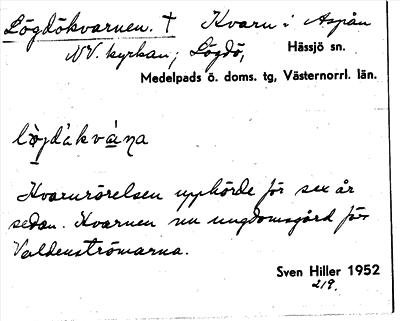 Lögdökvarnen. † Kvarn i Aspån
NV. kyrkan; Lögdö, Hässjö sn.
Medelpads ö. doms. tg, Västernorrl. län.
lògdàkvána
Kvarnrörelsen upphörde för sex år
sedan. Kvarnen nu ungdomsgård för
Valdenströmarna.
Sven Hiller 1952
2/9.